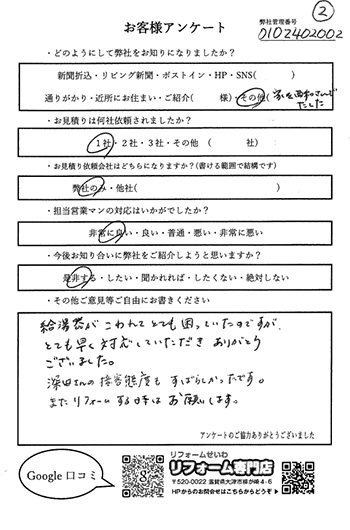 ②
お客様アンケート
弊社管理番号
0102402002
・どのようにして弊社をお知りになりましたか？
新聞折込・リビング新聞・ポストイン・HP・SNS( )
通りがかり・近所にお住まい・ご紹介( 様)・その他(
でした
・お見積りは何社依頼されましたか？
1社・2社・3社・その他 ( 社)
・お見積り依頼会社はどちらになりますか？(書ける範囲で結構です)
弊社のみ・他社( )
・担当営業マンの対応はいかがでしたか？
非常に良い・良い・普通・悪い・非常に悪い
・今後お知り合いに弊社をご紹介しようと思いますか？
是非する・したい・聞かれれば・したくない・絶対しない
・その他ご意見等ご自由にお書きください
給湯器がこわれてとても困っていたのですが、
とても早く対応していただきありがとう
ございました。
深田さんの接客態度もすばらしかったです。
またリフォームする時はお願いします。
アンケートのご協力ありがとうございました
Google口コミ
リフォームせいわ
リフォーム専門店
〒520-0022 滋賀県大津市柳が崎4-6
HPからのお問合せはこちらからどうぞ▶